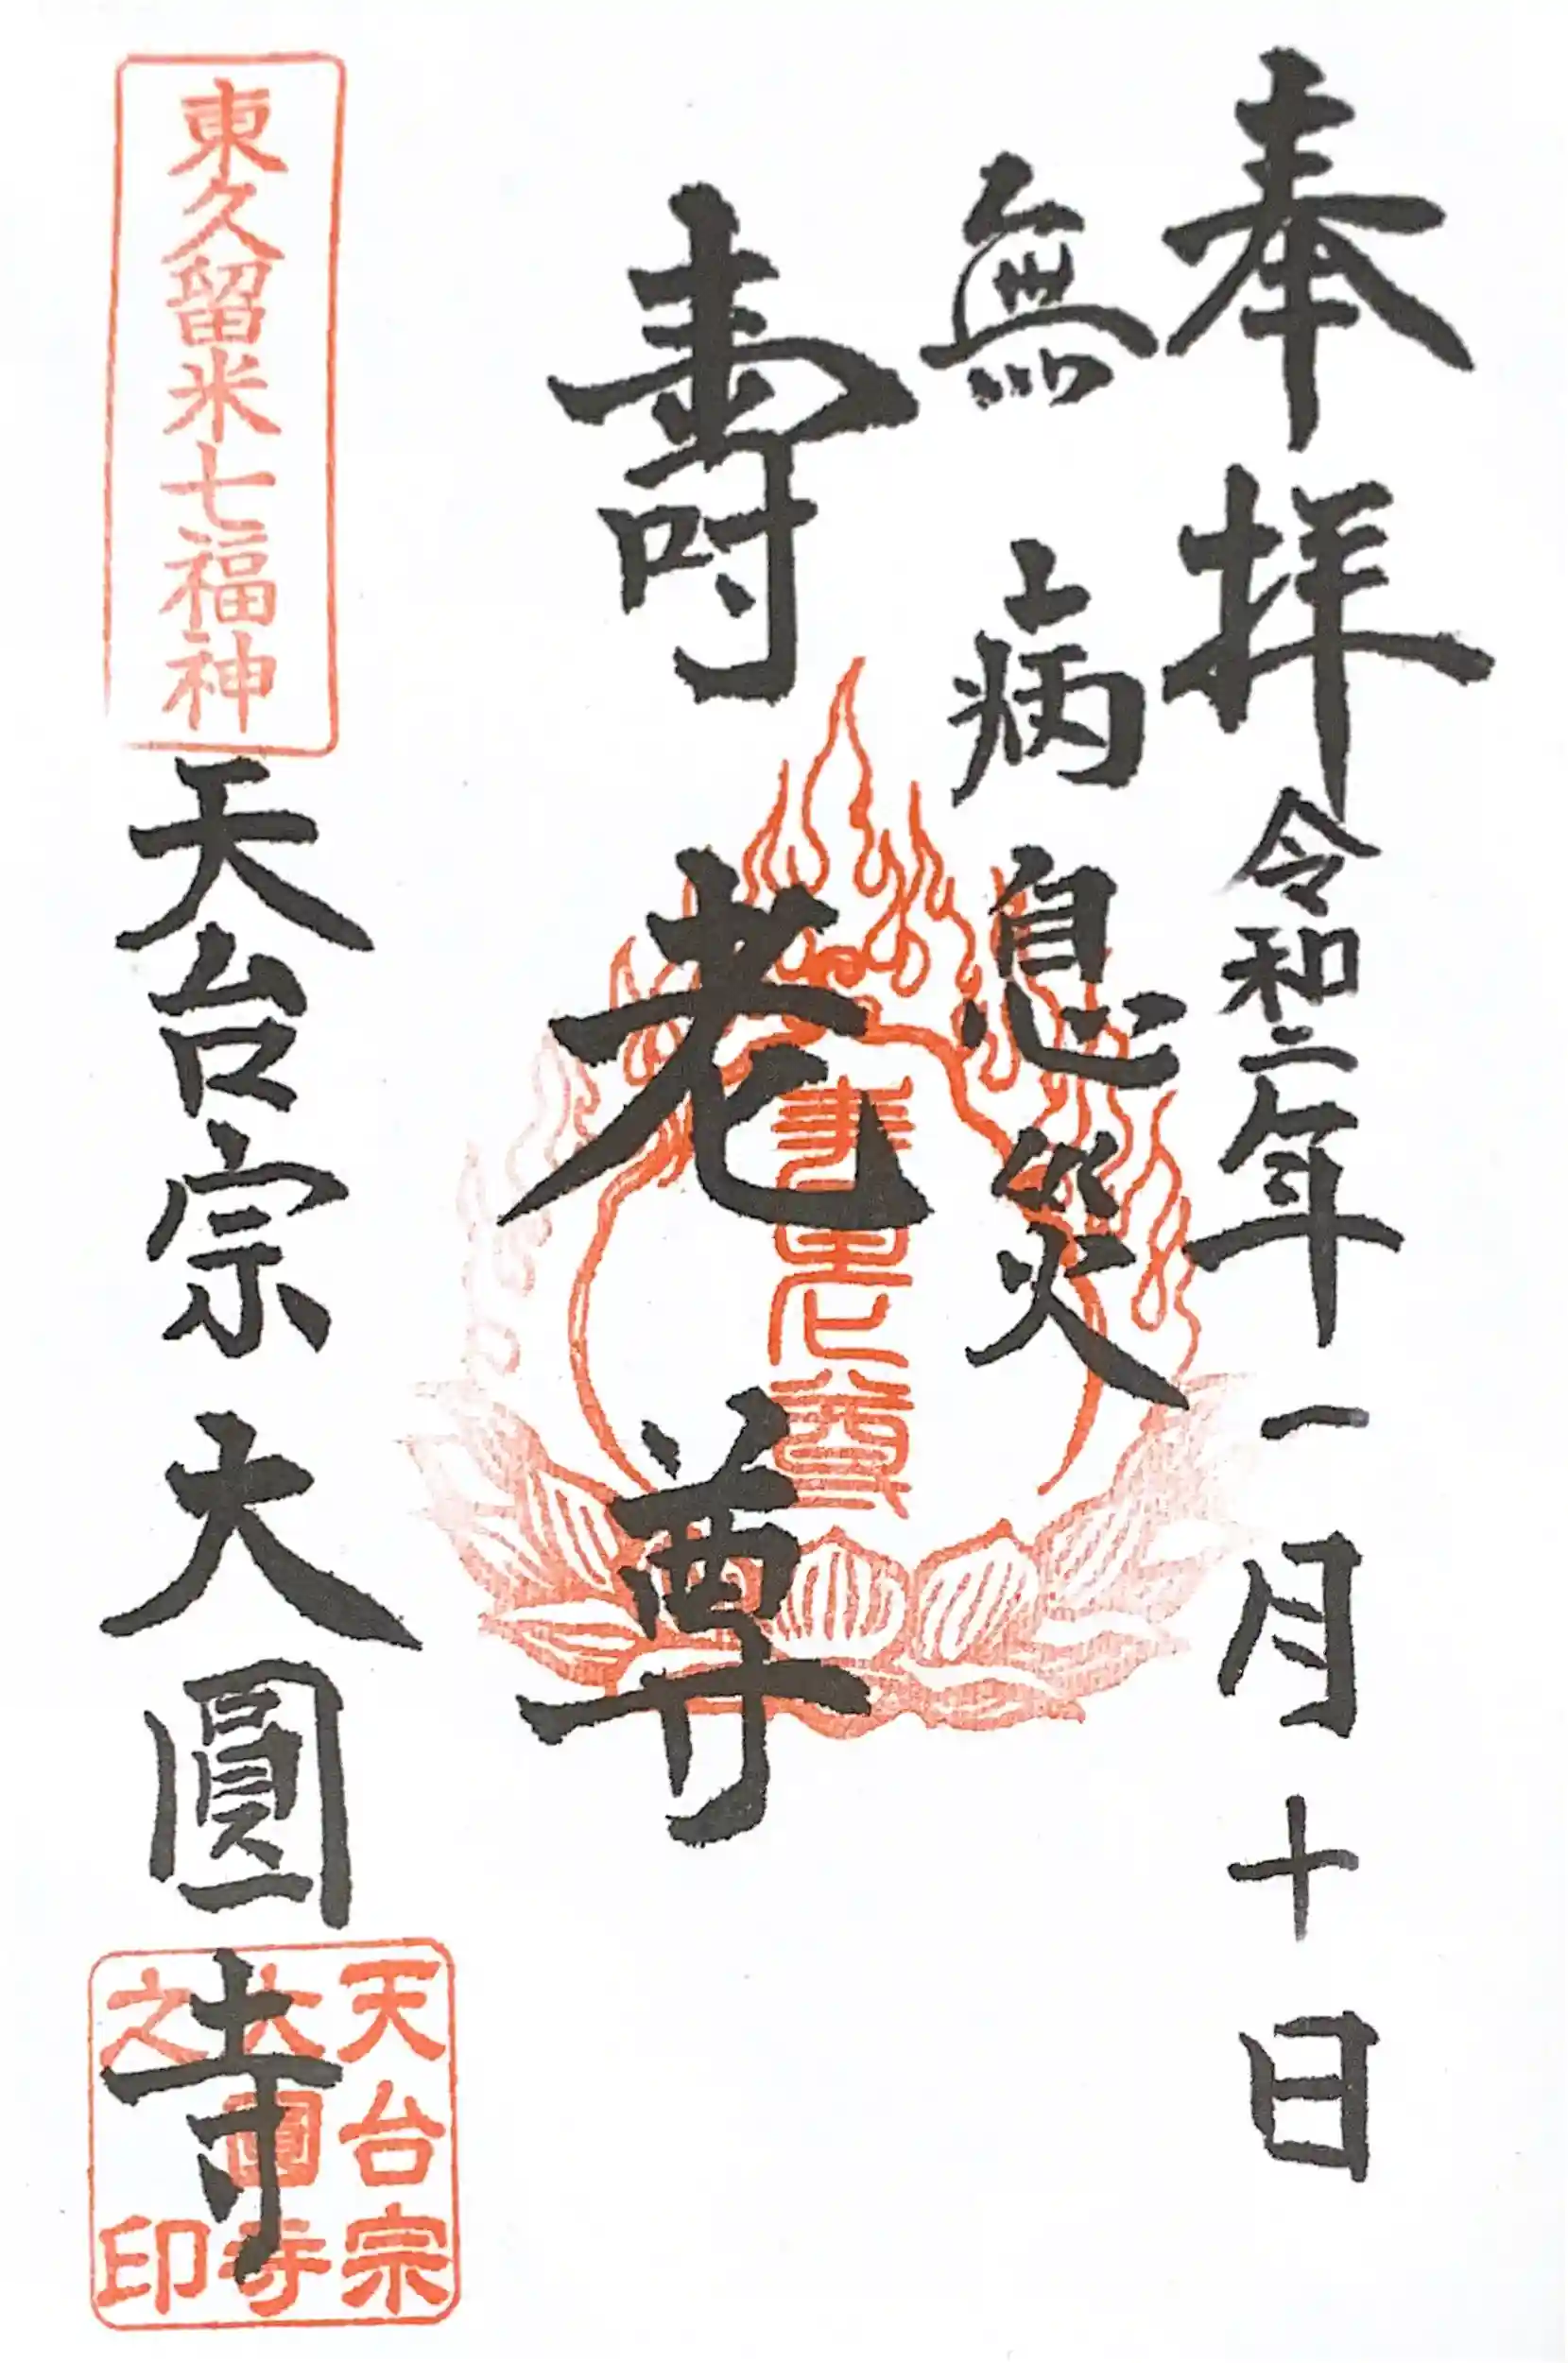 奉拝 令和二年一月十日
無病息災
寿老尊
壽老尊
東久留米七福神
天台宗 大圓寺
天台宗
大圓寺
之印